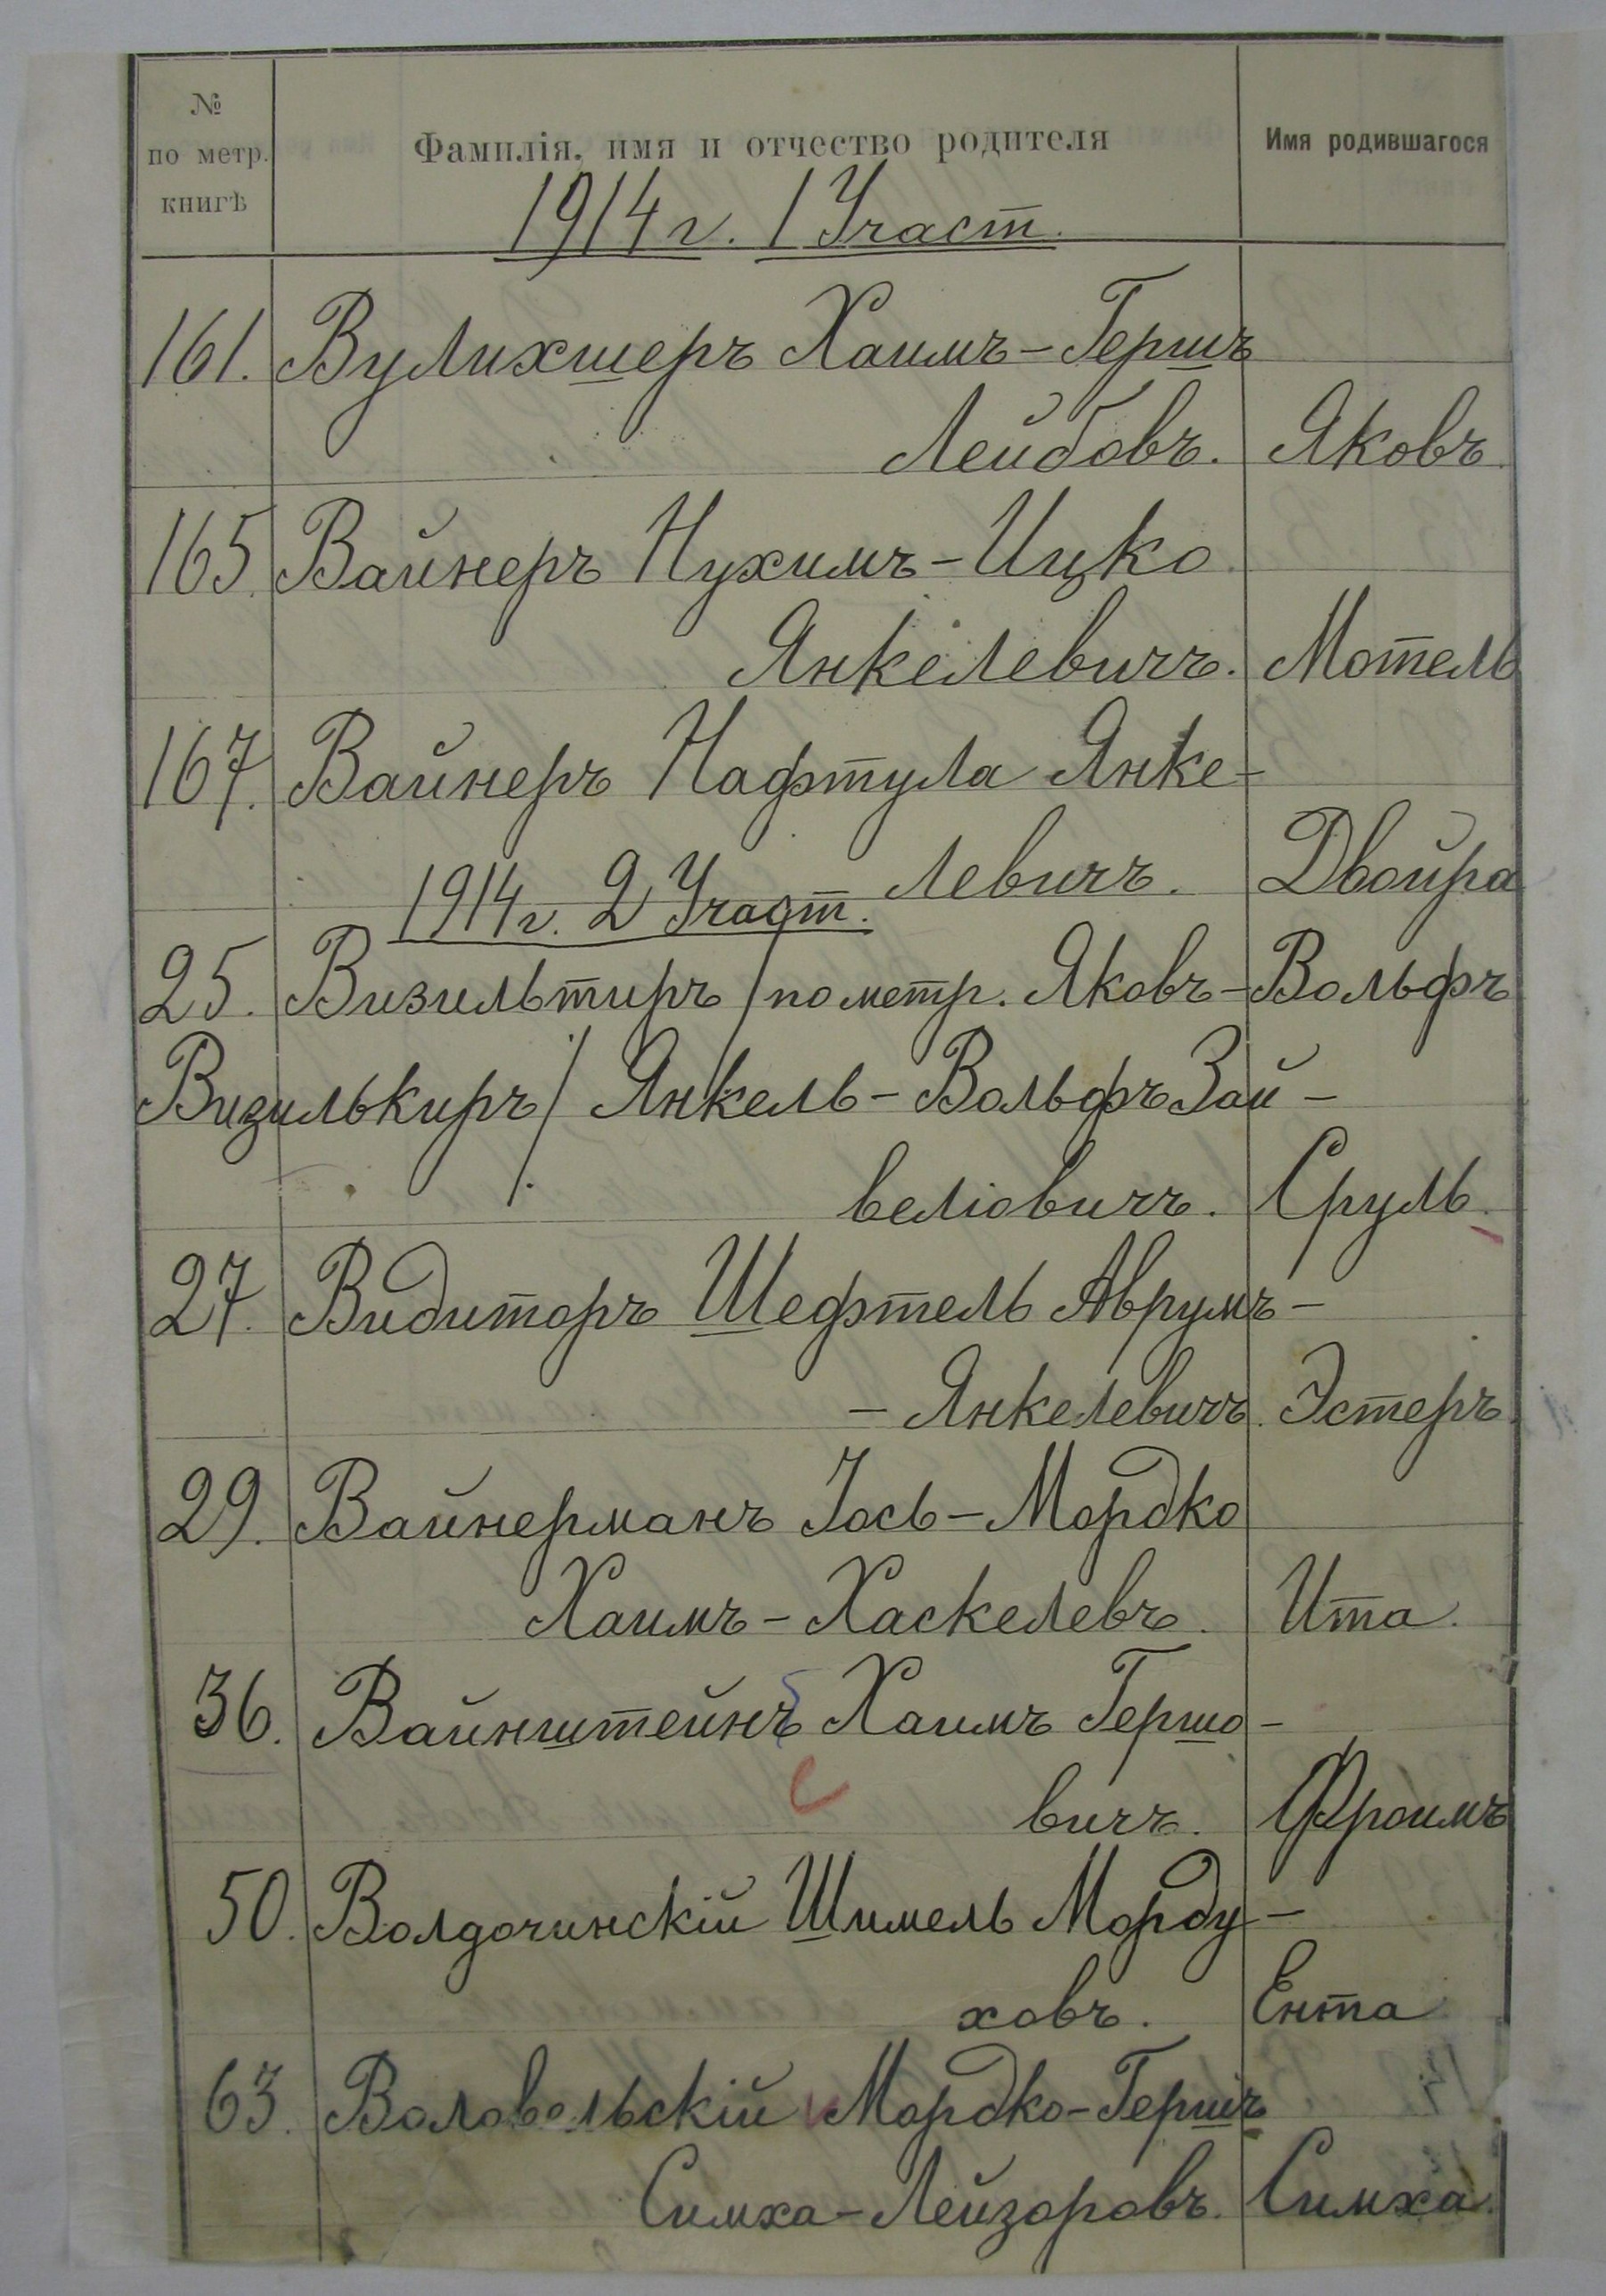 № по метр. книгѣ | Фамилія, имя и отчество родителя | Имя родившагося
1914 г. 1 Участ.
161. Вулихшеръ Хаимъ-Гершъ
Лейбовъ. Яковъ.
165. Вайнеръ Нухимъ-Ицко
Янкелевичъ. Мотель
167. Вайнеръ Нафтула Янке-
левичъ. Двойра
1914 г. 2 Участ.
25. Визильтиръ /по метр. Яковъ-Вольфъ
Визилькиръ/ Янкель-Вольфъ Зай-
веліовичъ. Сруль.
27. Видиторъ Шефтель Аврумъ-
-Янкелевичъ. Эстеръ.
29. Вайнерманъ Іось-Мордко
Хаимъ-Хаскелевъ. Ита.
36. Вайнштейнъ Хаимъ Гершо-
вичъ. Фроимъ
50. Волдочинскій Шимель Морду-
ховъ. Ента
63. Воловельскій Мордко-Гершъ
Симха-Лейзоровъ. Симха.